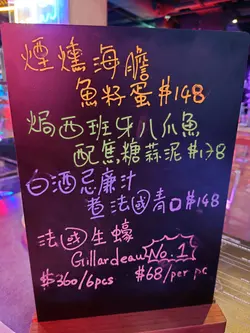 煙燻海膽
魚籽蛋 $148
焗西班牙八爪魚
配焦糖蒜泥 $138
白酒忌廉汁
煮法國青口 $148
法國生蠔
Gillardeau No.1
$360/6pcs $68/per pc